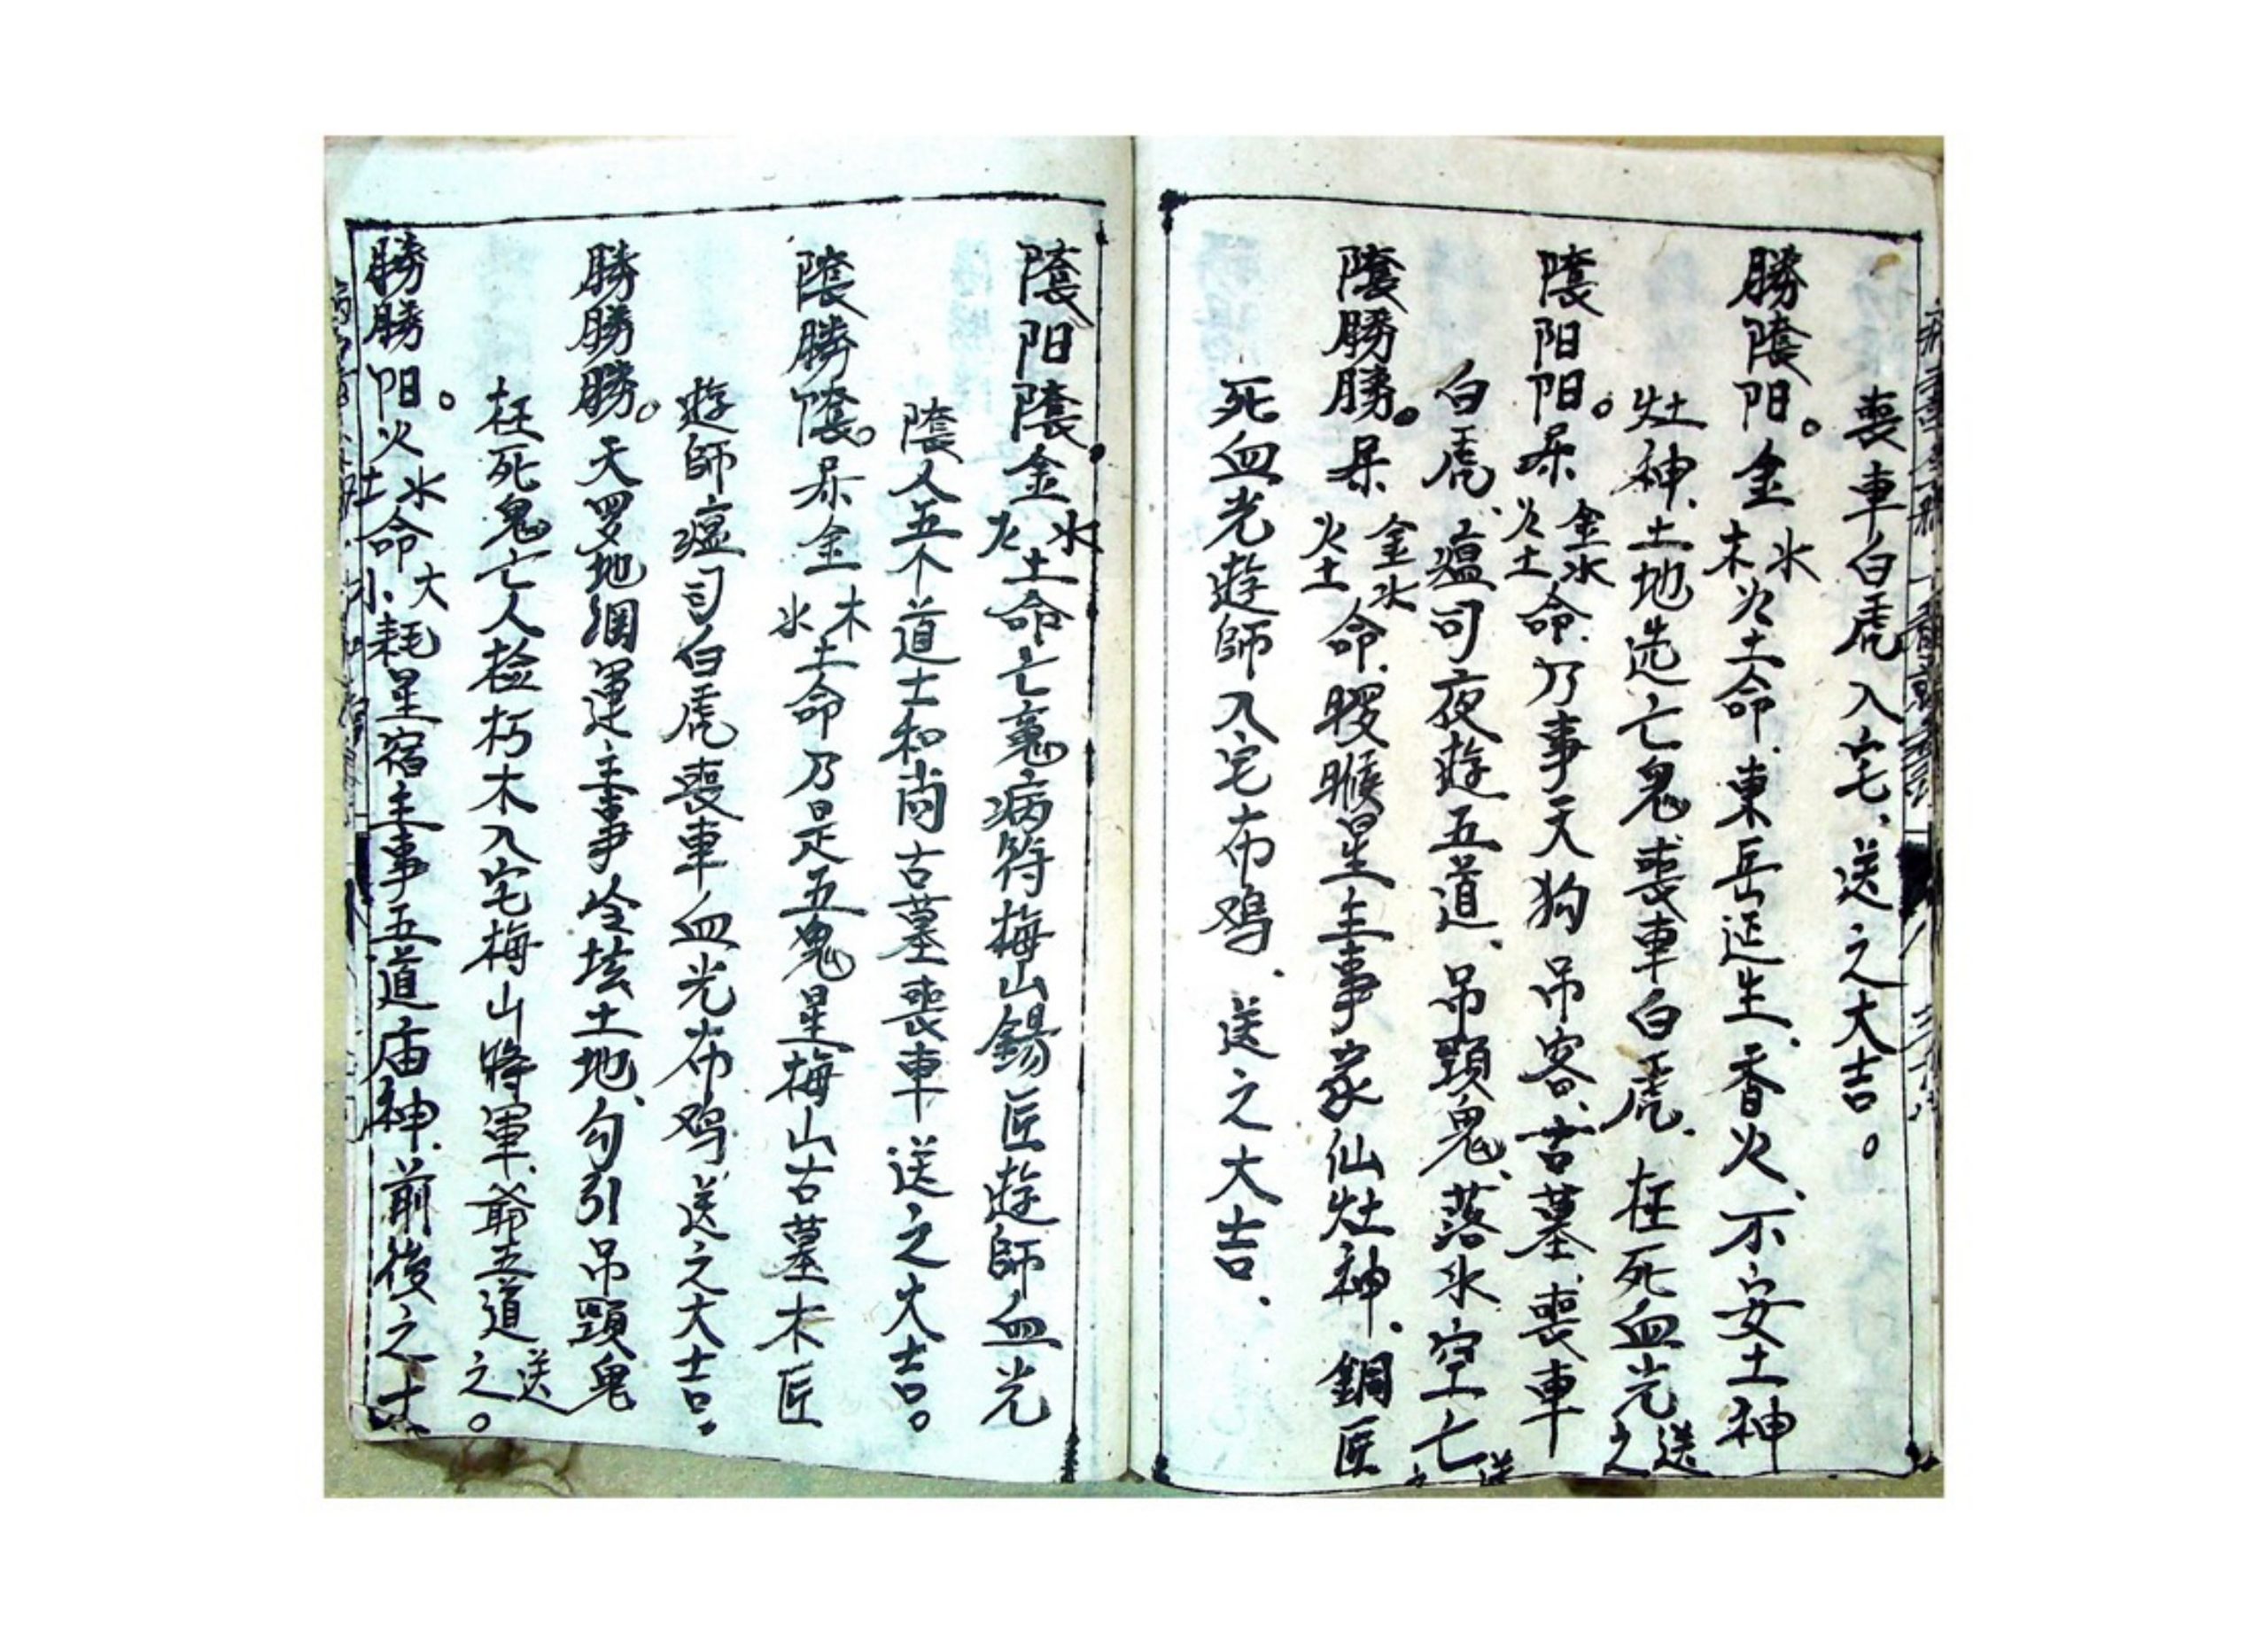 喪車白虎入宅、送之大吉。
勝陰阳。金水木火土命、東岳延生、香火、不安土神
灶神、土地迭亡鬼喪車白虎、枉死血光送之
陰阳阳。杀金水火土命、乃事天狗吊客、古墓、喪車
白虎、瘟司夜遊五道、吊頸鬼、落水空亡送之
陰勝勝。杀金水火土命、星主事家仙灶神、銅匠
死血光遊師入宅布鸡、送之大吉、
陰阳陰。金水火土命亡鬼病符梅山錫匠遊師血光
陰人五个道士和尚古墓喪車送之大吉。
陰勝陰。杀金木水土命乃是五鬼星梅山古墓木匠
遊師瘟司白虎喪車血光布鸡送之大吉。
勝勝勝。天罗地網運主事冷坛土地、勾引吊頸鬼
枉死鬼亡人检朽木入宅梅山將軍、爺五道送之。
勝勝阳。火水土命大小耗星宿主事五道庙神、前後之土